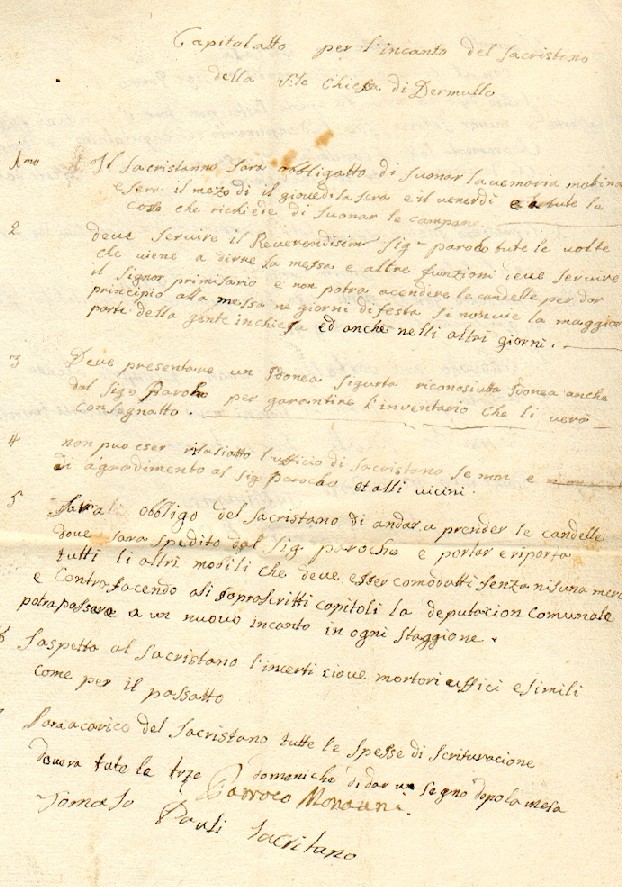 Capitolatto per l'incanto del Sacristano
della Chiesa di Dermullo
1mo Il Sacristanno sara obbligatto di suonar lavemaria matina
e sera il mezo di il giovedi la sera e il venerdi e tute la
cosa che richiede di suonar le campane
2 deve servire il Reverendisimo Sig.r paroco tute le volte
che viene a dirne la messa e altre funzioni deve servire
il Signor primisario e non potra acendere le candelle per dar
principio alla messa ne giorni di festa se non vie la maggior
parte della gente in chiesa ed anche nelli altri giorni.
3 Deve presentare un Idonea sigurta riconosciutta Idonea anche
dal Sig.r Paroco per garantire l'inventario che li vera
Consegnatto.
4 non puo eser rilasiatto l'ufficio di Sacristano se non e
di agradimento al sig. Paroco et alli vicini.
5 Sara l obbligo del Sacristano di andar a prender le candelle
dove sara spedito dal Sig. parocho e portar e riporta
tutti li altri mobili che deve esser comodatti senza nisuna
e Contrafacendo ali soprascritti capitoli la deputacion Comunale
potra passare a un nuovo incanto in ogni staggione.
6 Saspetta al Sacristano l'incerti cioue mortori uffici e simili
come per il passatto
Sara a carico del Sacristano tutte le spesse di scrituracione
dovera tute le trze domeniche di dar un segno dopo la mesa
Parroco
Tomaso Pauli Sacritano